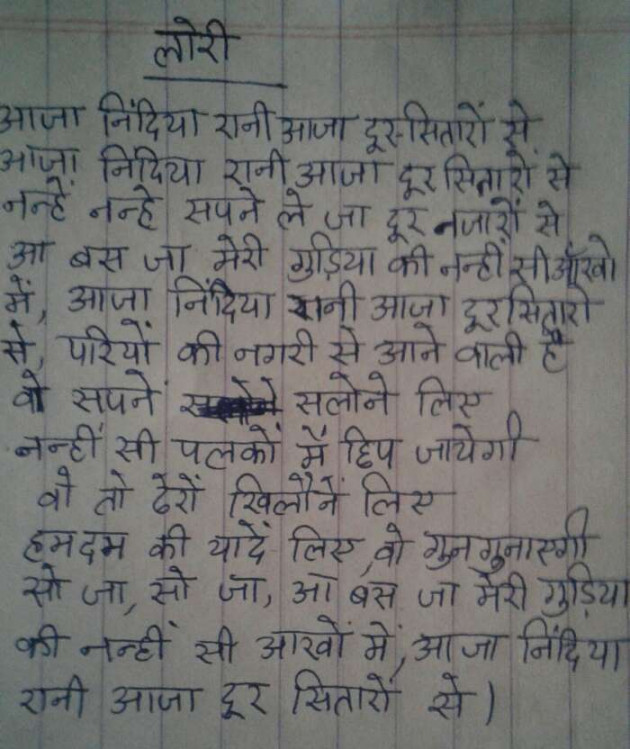 लोरी
आजा निंदिया रानी आजा दूर सितारों से
आजा निंदिया रानी आजा दूर सितारों से
नन्हें नन्हे सपने ले जा दूर नजारों से
आ बस जा मेरी गुड़िया की नन्हीं सी आँखो
में, आजा निंदिया रानी आजा दूर सितारों
से, परियों की नगरी से आने वाली है
वो सपने सलोने लिए
नन्हीं सी पलकों में छिप जायेगी
वो तो ढेरों खिलौनें लिए
हमदम की यादें लिए, वो गुनगुनाएगी
सो जा, सो जा, आ बस जा मेरी गुड़िया
की नन्हीं सी आखों में, आजा निंदिया
रानी आजा दूर सितारों से )